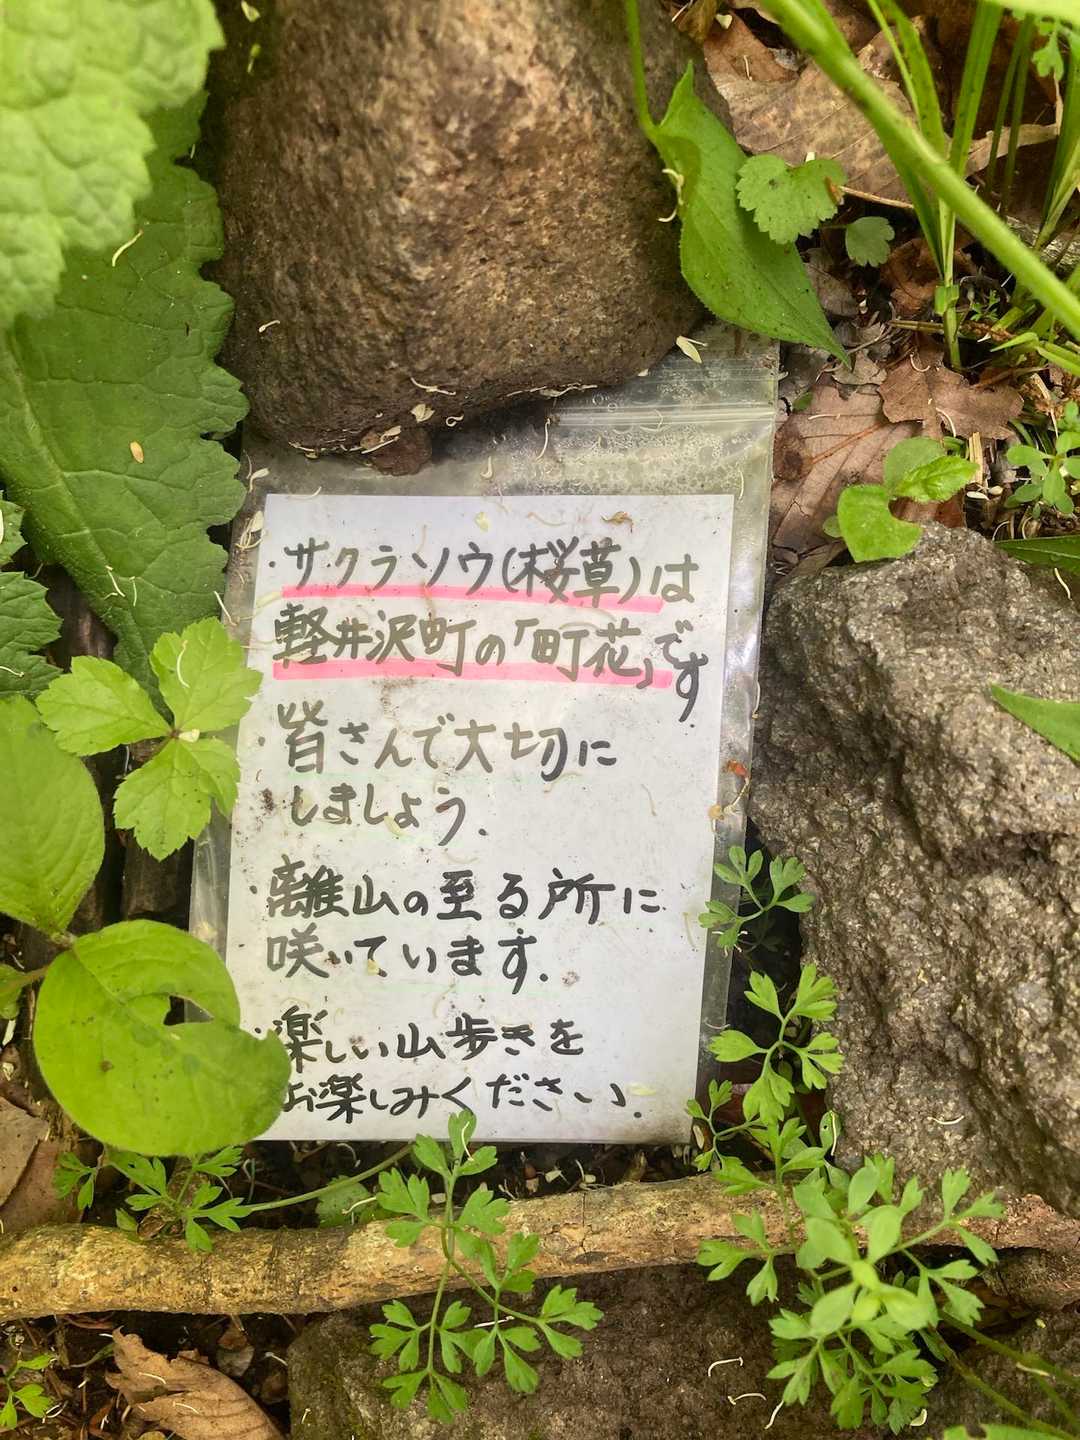 ・サクラソウ(桜草)は
軽井沢町の「町花」です
・皆さんで大切に
しましょう.
・離山の至る所に
咲いています.
・楽しい山歩きを
お楽しみください.